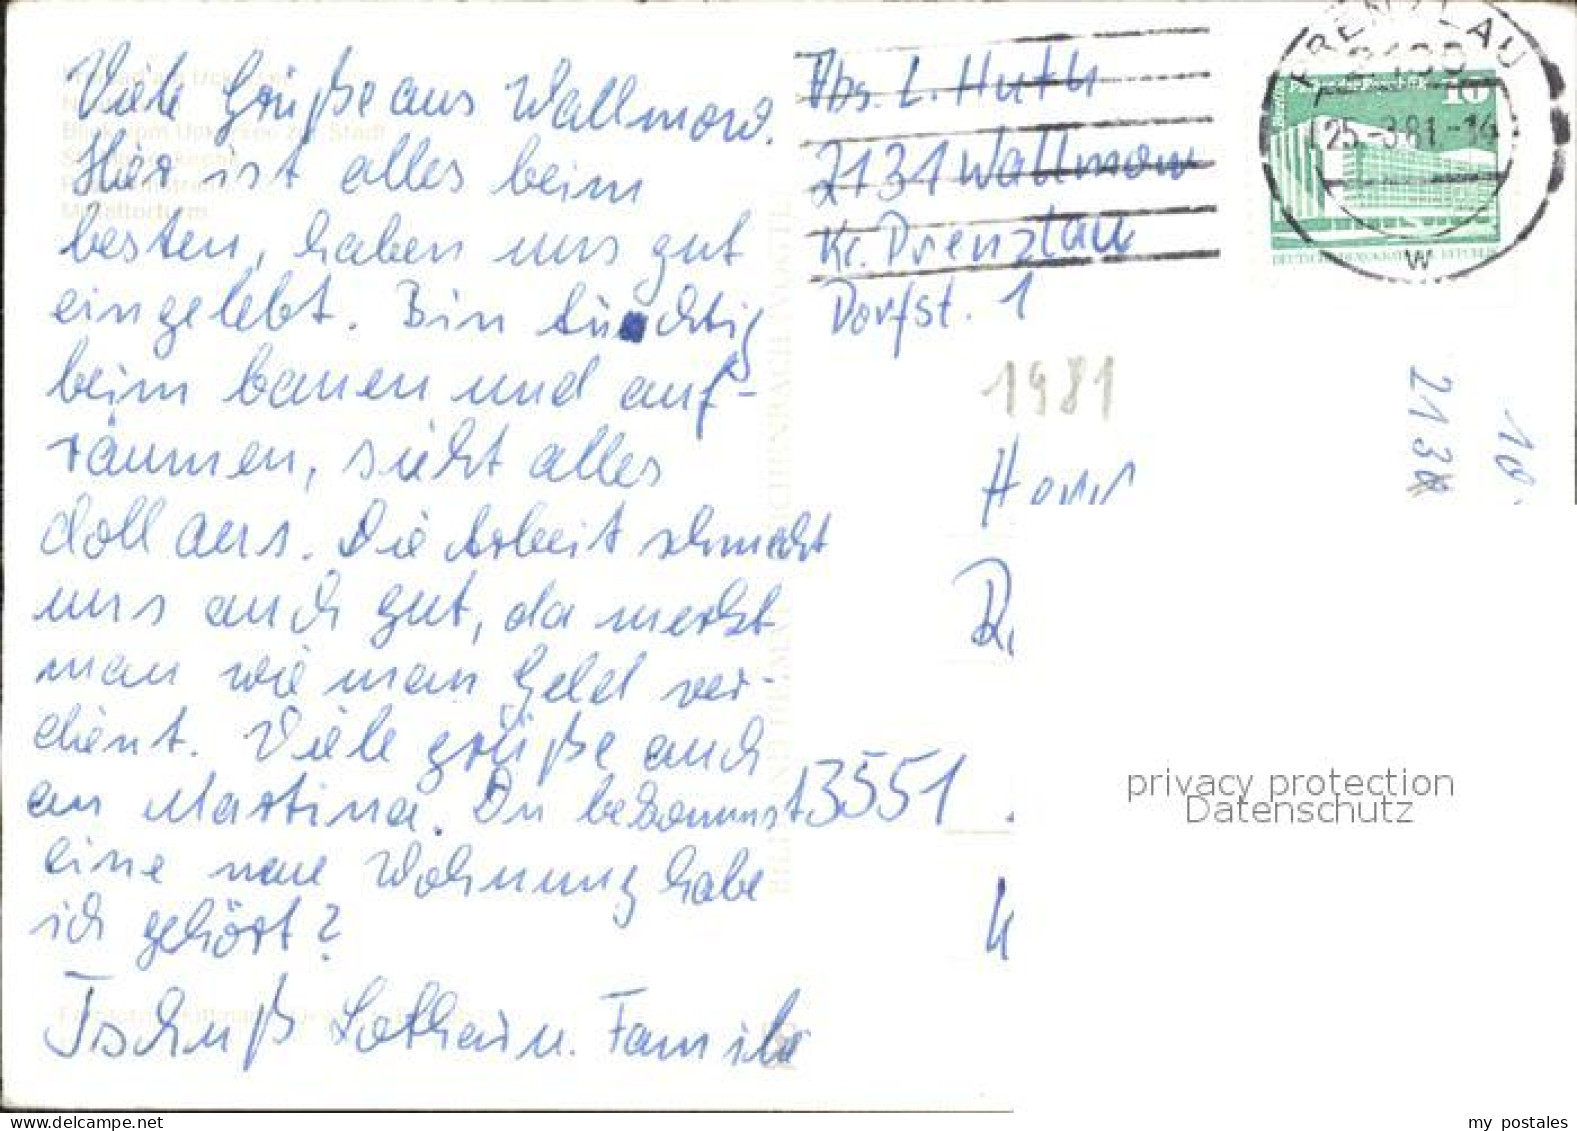 Viele Grüße aus Wallmow.
Hier ist alles beim
besten, haben uns gut
eingelebt. Bin tüchtig
beim bauen und auf-
räumen, sieht alles
doll aus. Die Arbeit schmeckt
uns auch gut, da merkt
man wie man Geld ver-
dient. Viele grüße auch
an Martina. Du bekommst
eine neue Wohnung habe
ich gehört?
Tschüß Lothar u. Familie
Abs. L. Huth
2131 Wallmow
Kr. Prenzlau
Dorfst. 1
PRENZLAU
2130
25.-3.81.-14
W
10
DEUTSCHE DEMOKRATISCHE REPUBLIK
1981
213
10
3551
privacy protection
Datenschutz
my postales